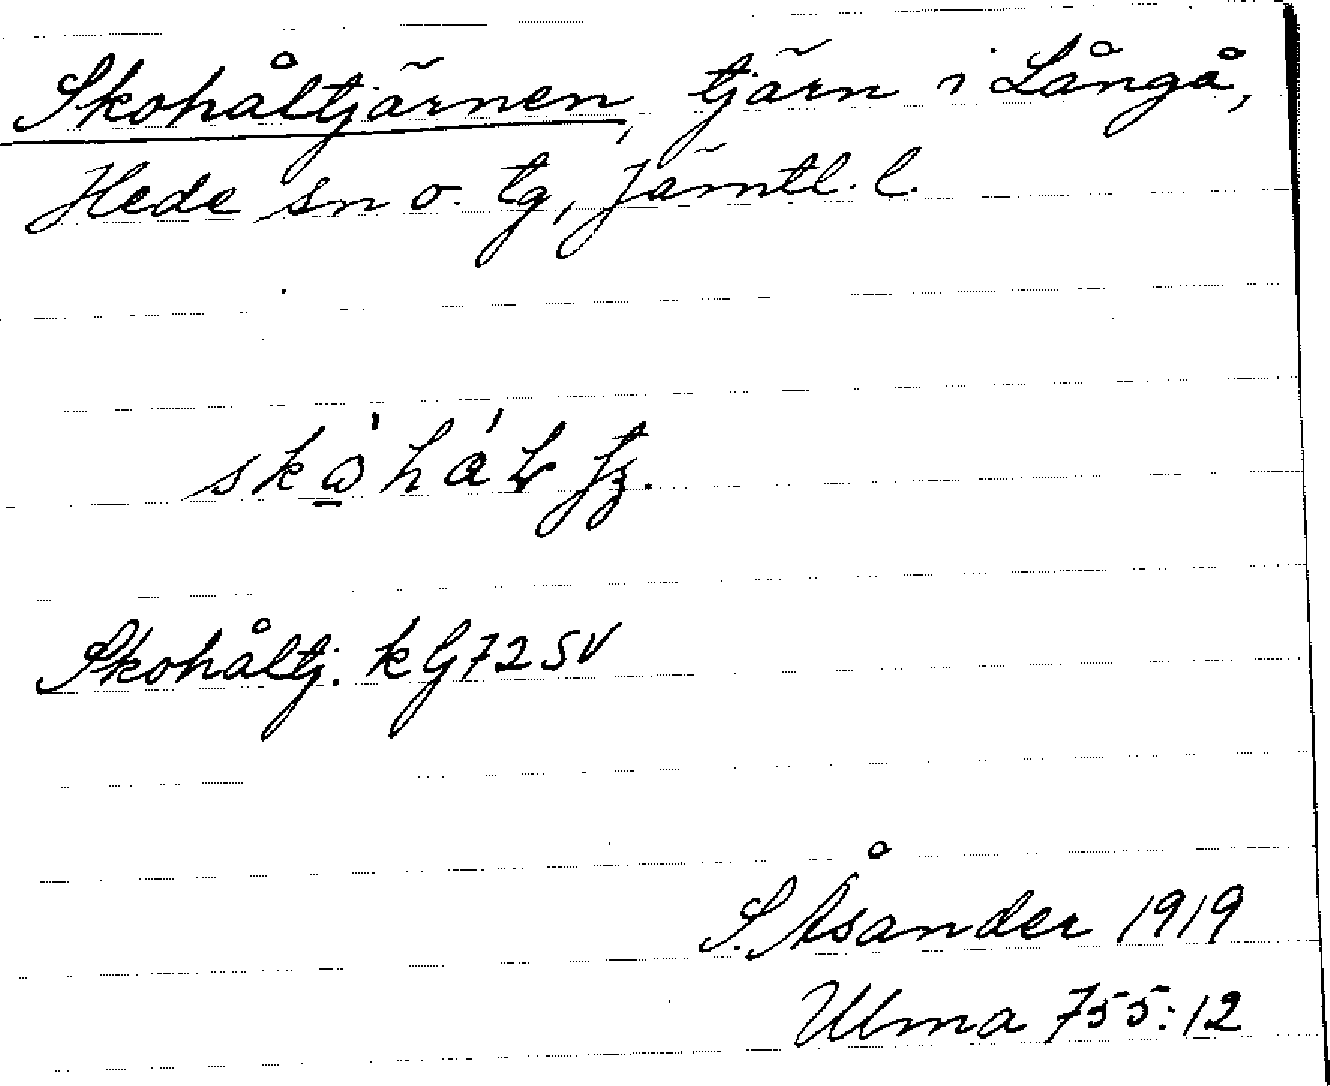 Skohåltjärnen, tjärn i Långå,
Hede sn o. tg, Jämtl. l.
Skohåltj. k G72 SV
S. Åsander 1919
Ulma 755:12